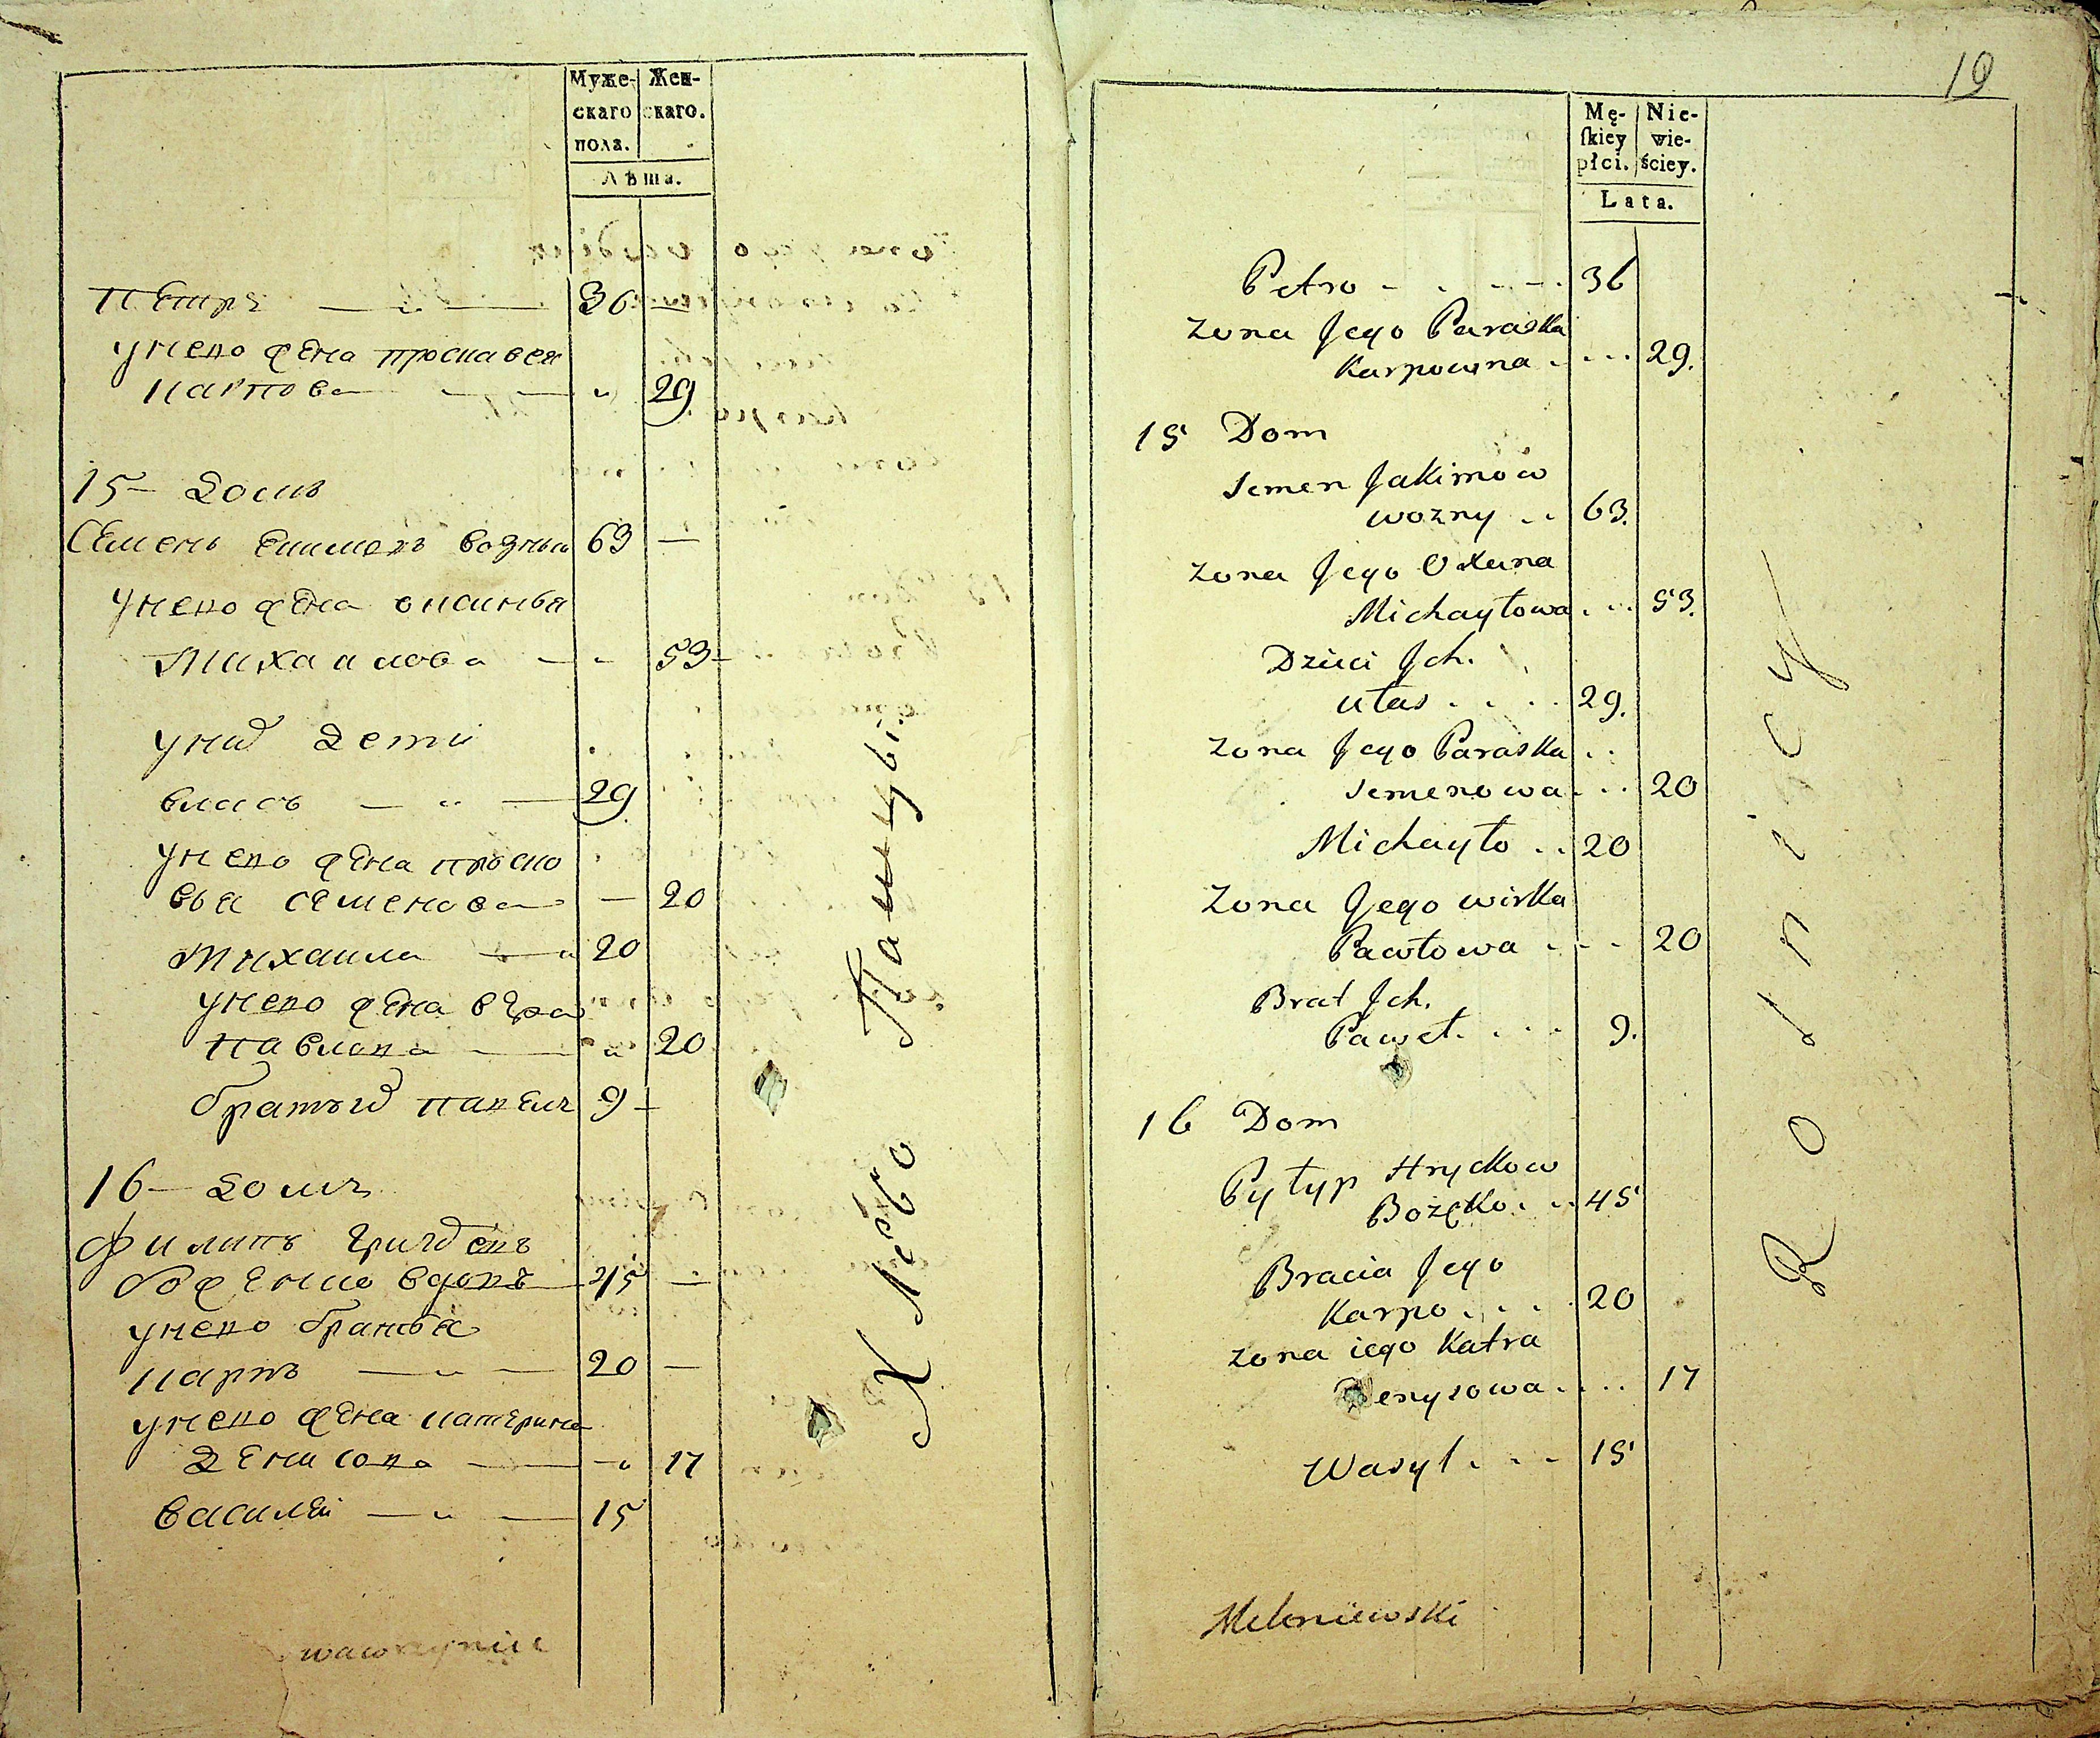 Муже- Жен-
скаго скаго.
пола.
Лѣта.
Петръ — „ — 36 —
у него жена просковея
карпова — — „ 29
15 — домъ
Семенъ Екимовъ возный 63 —
у него жена оксинья
Михаилова — „ 53 —
у них дети
власъ — „ — 29
у него жена проско
вья семенова — 20
Михаила — „ 20
у него жена вера
павлова — „ 20
братъ их павелъ 9 —
16 — домъ
Филипъ Грицковъ
боженко вдовъ 45 —
у него братья
карпъ — „ — 20 —
у него жена катерина
Денисова — „ 17
василей — „ — 15
Хлѣбо Пашцы
wawrzyniec
19
Mę- Nie-
ſkiey wie-
płci. ściey.
Lata.
Petro - - - - 36
żona Jego Paraska
Karpowna . . . . 29.
15 Dom
Semen Jakimow
wozny . . 63.
żona Jego Oxana
Michayłowa . . . 53.
Dzieci Jch.
Ułas . . . . 29.
żona Jego Paraska . .
Semenowa . . . 20
Michayło . . 20
Żona Jego wirka
Pawłowa . . . 20
Brat Jch.
Paweł . . . . 9.
16 Dom
Pyłyp Hryckow
Bożęko . . . 45
Bracia Jego
Karpo . . . . 20
żona iego Katra
Denysowa . . . . 17
Wasyl . . . 15
Rolnicy
Meleniewski